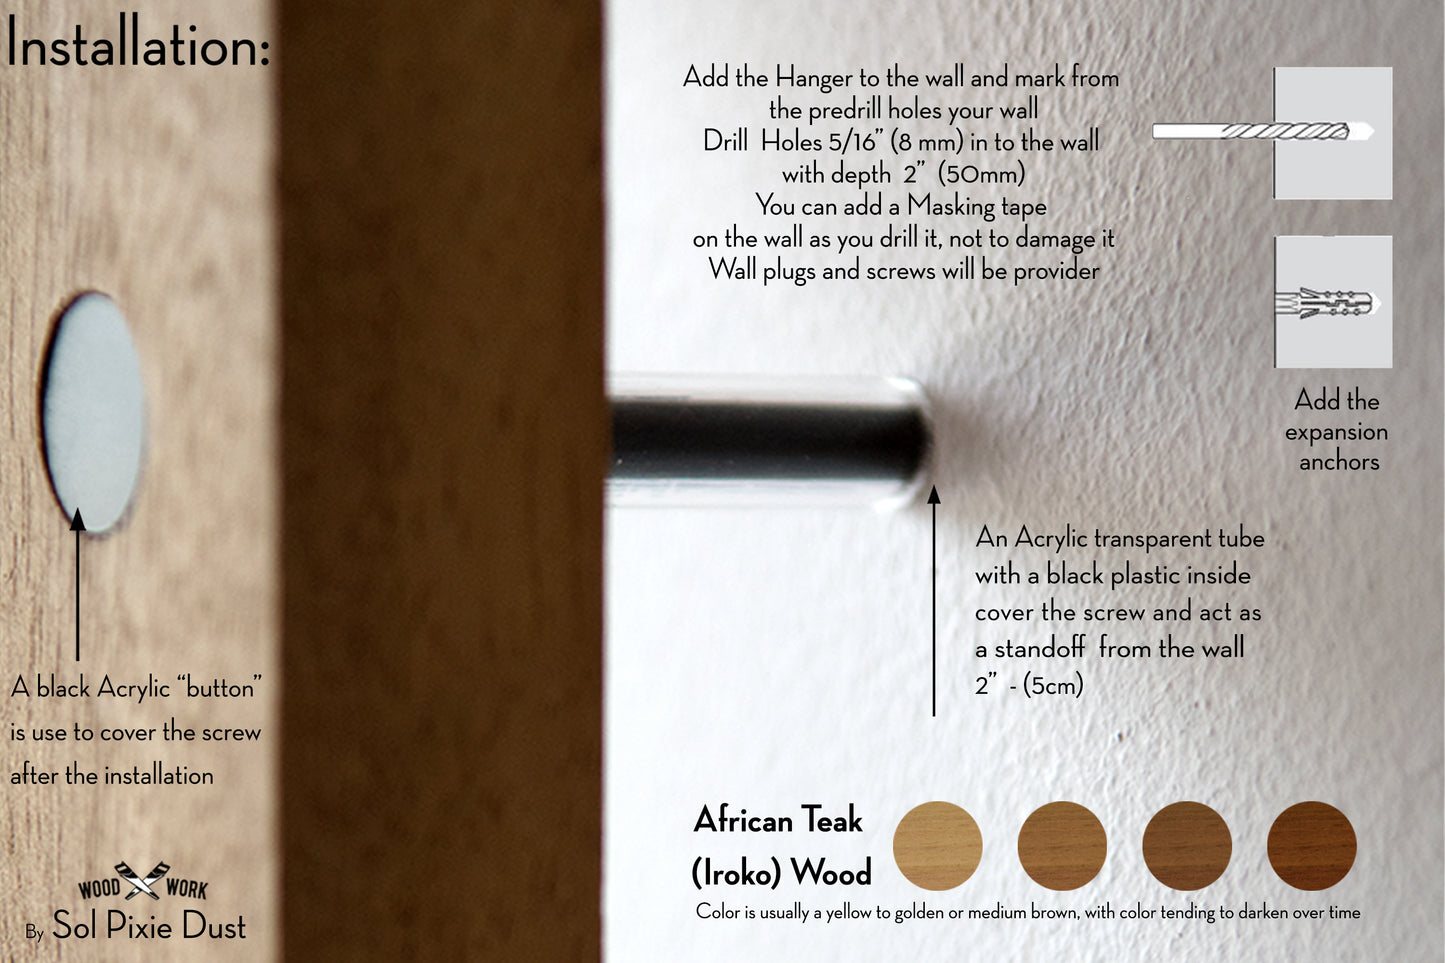 Installation:
Add the Hanger to the wall and mark from
the predrill holes your wall
Drill Holes 5/16” (8 mm) in to the wall
with depth 2” (50mm)
You can add a Masking tape
on the wall as you drill it, not to damage it
Wall plugs and screws will be provider
Add the
expansion
anchors
An Acrylic transparent tube
with a black plastic inside
cover the screw and act as
a standoff from the wall
2” - (5cm)
A black Acrylic “button”
is use to cover the screw
after the installation
WOOD WORK
By Sol Pixie Dust
African Teak
(Iroko) Wood
Color is usually a yellow to golden or medium brown, with color tending to darken over time